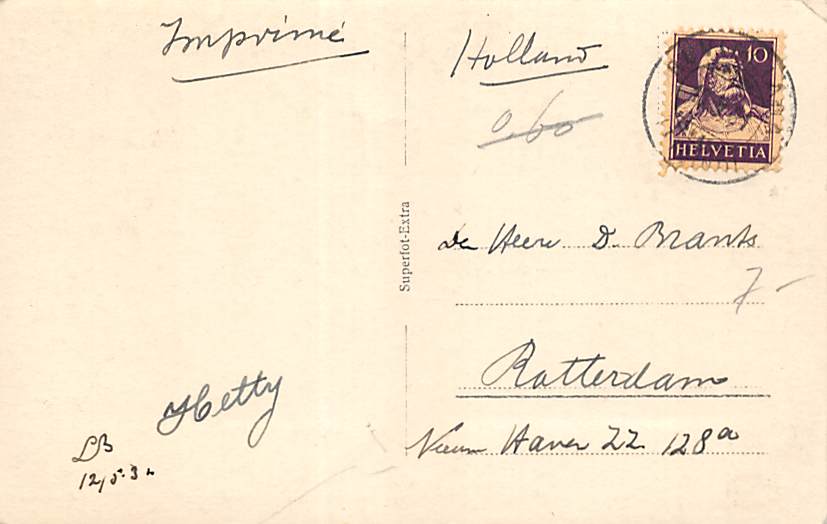 Imprimé
Holland
0,60
10
HELVETIA
Superfot-Extra
De Heere D. Brants
7-
Rotterdam
Haven ZZ 128a
Hetty
LB